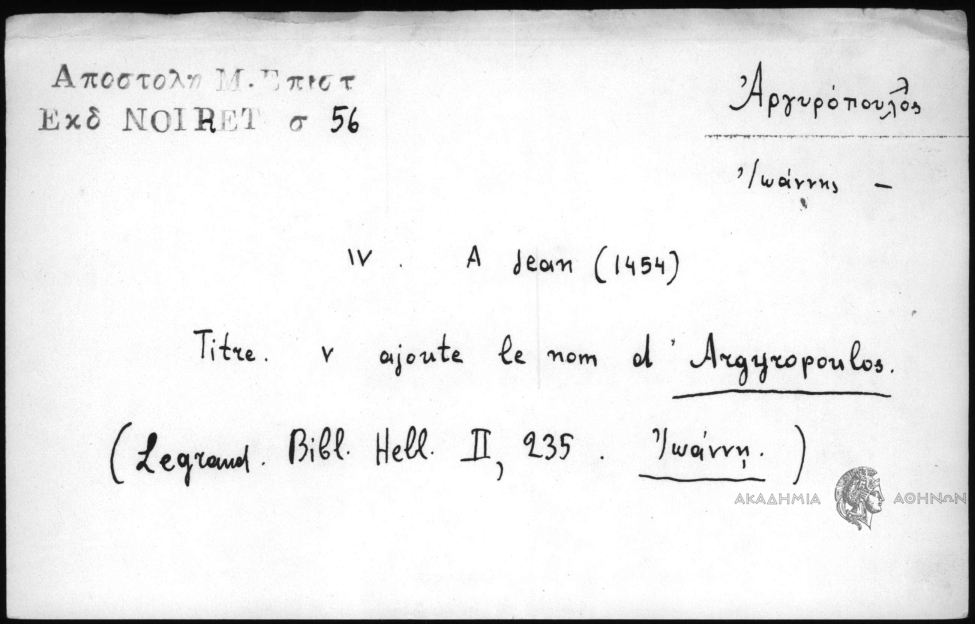 Αποστολη Μ. Επιστ
Εκδ NOIRET σ 56
Ἀργυρόπουλος
Ἰωάννης –
IV. A Jean (1454)
Titre. v ajoute le nom d'Argyropoulos.
(Legrand. Bibl. Hell. II, 235. Ἰωάννῃ.)
ΑΚΑΔΗΜΙΑ ΑΘΗΝΩΝ